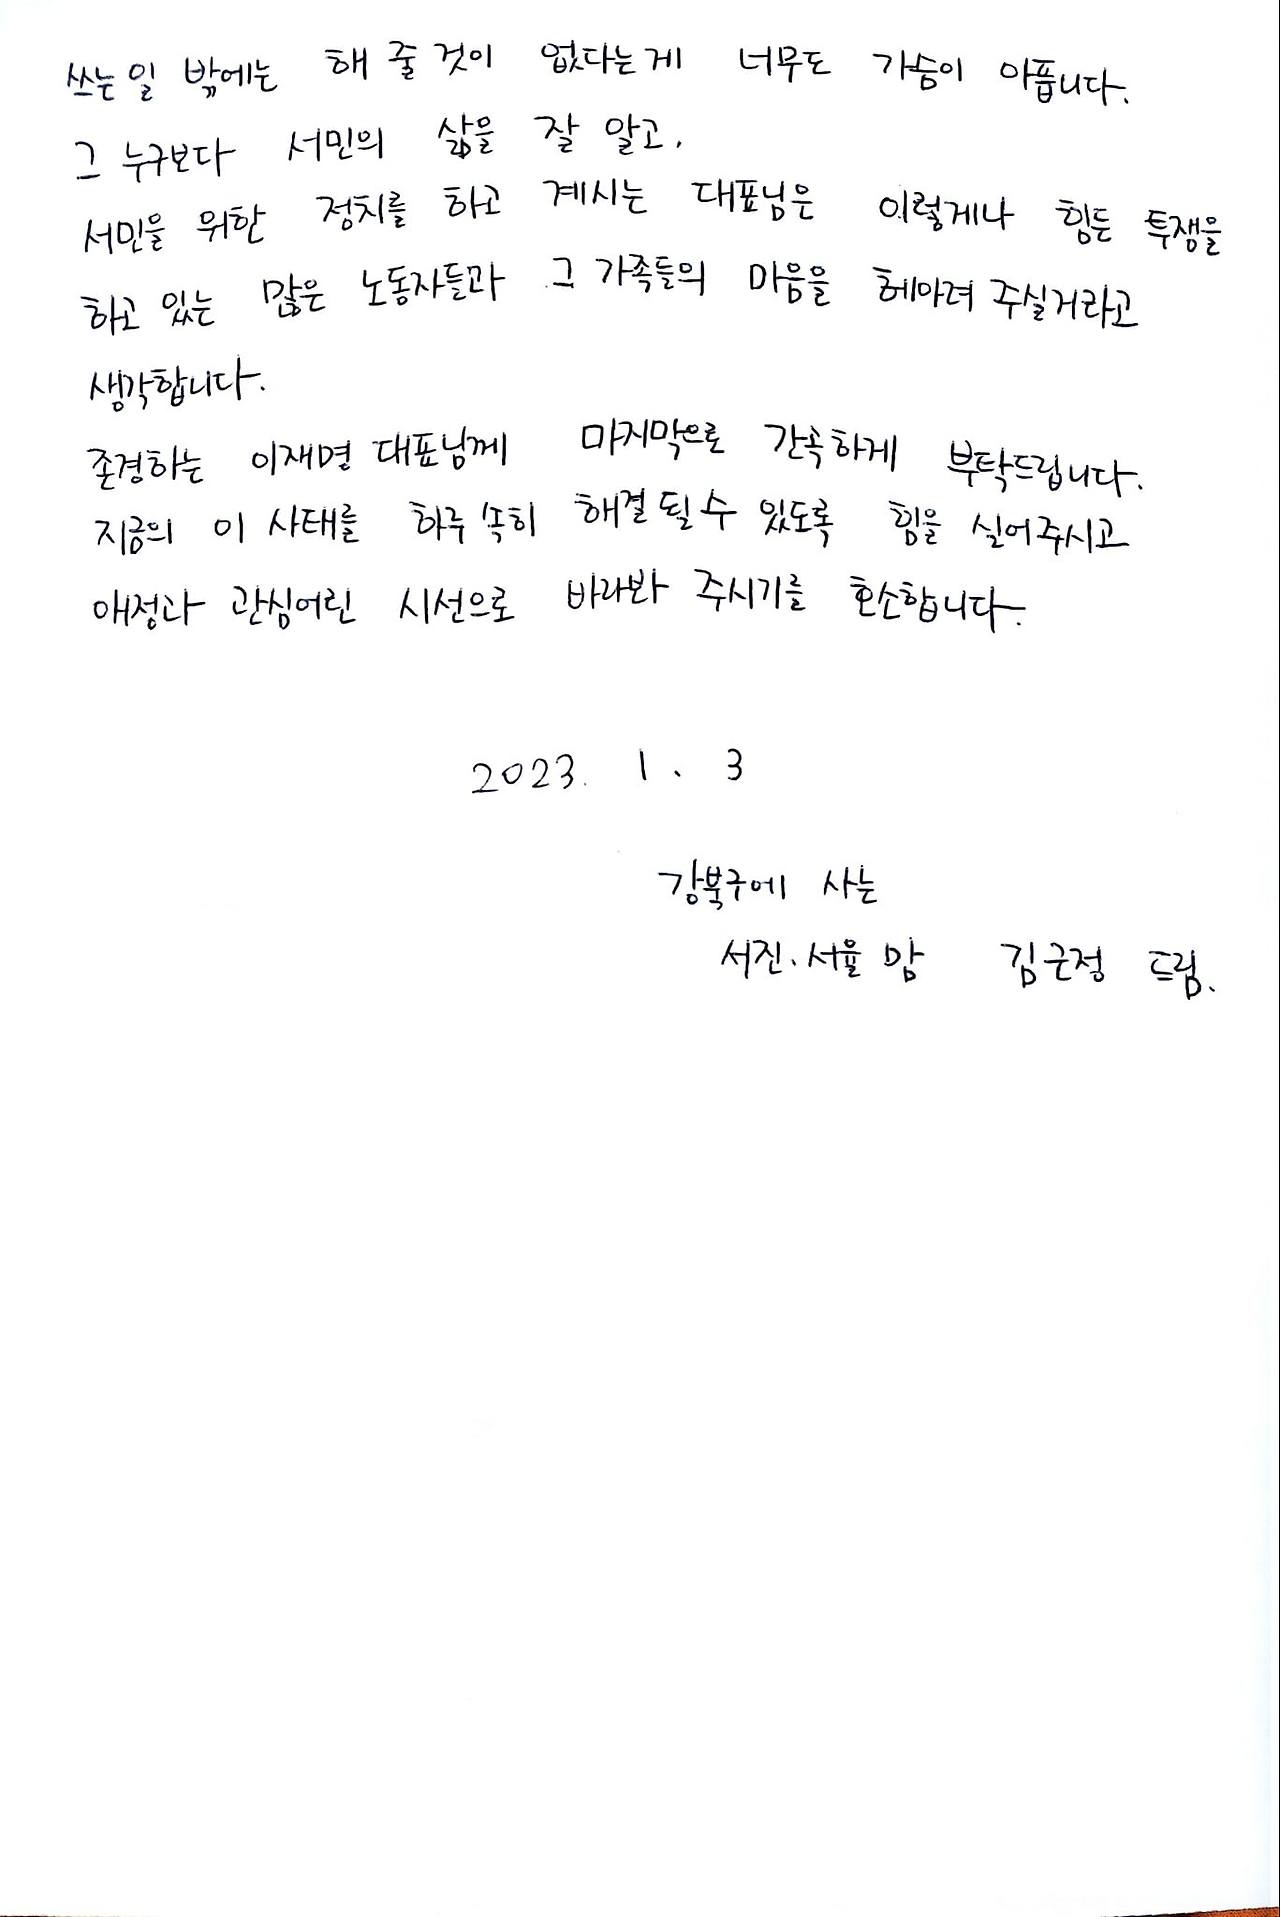 쓰는 일 밖에는 해 줄 것이 없다는게 너무도 가슴이 아픕니다.
그 누구보다 서민의 삶을 잘 알고,
서민을 위한 정치를 하고 계시는 대표님은 이렇게나 힘든 투쟁을
하고 있는 많은 노동자들과 그 가족들의 마음을 헤아려 주실거라고
생각합니다.
존경하는 이재명 대표님께 마지막으로 간곡하게 부탁드립니다.
지금의 이 사태를 하루 속히 해결 될 수 있도록 힘을 실어주시고
애정과 관심어린 시선으로 바라봐 주시기를 호소합니다.
2023. 1. 3
강북구에 사는
서진.서율 맘 김근정 드림.